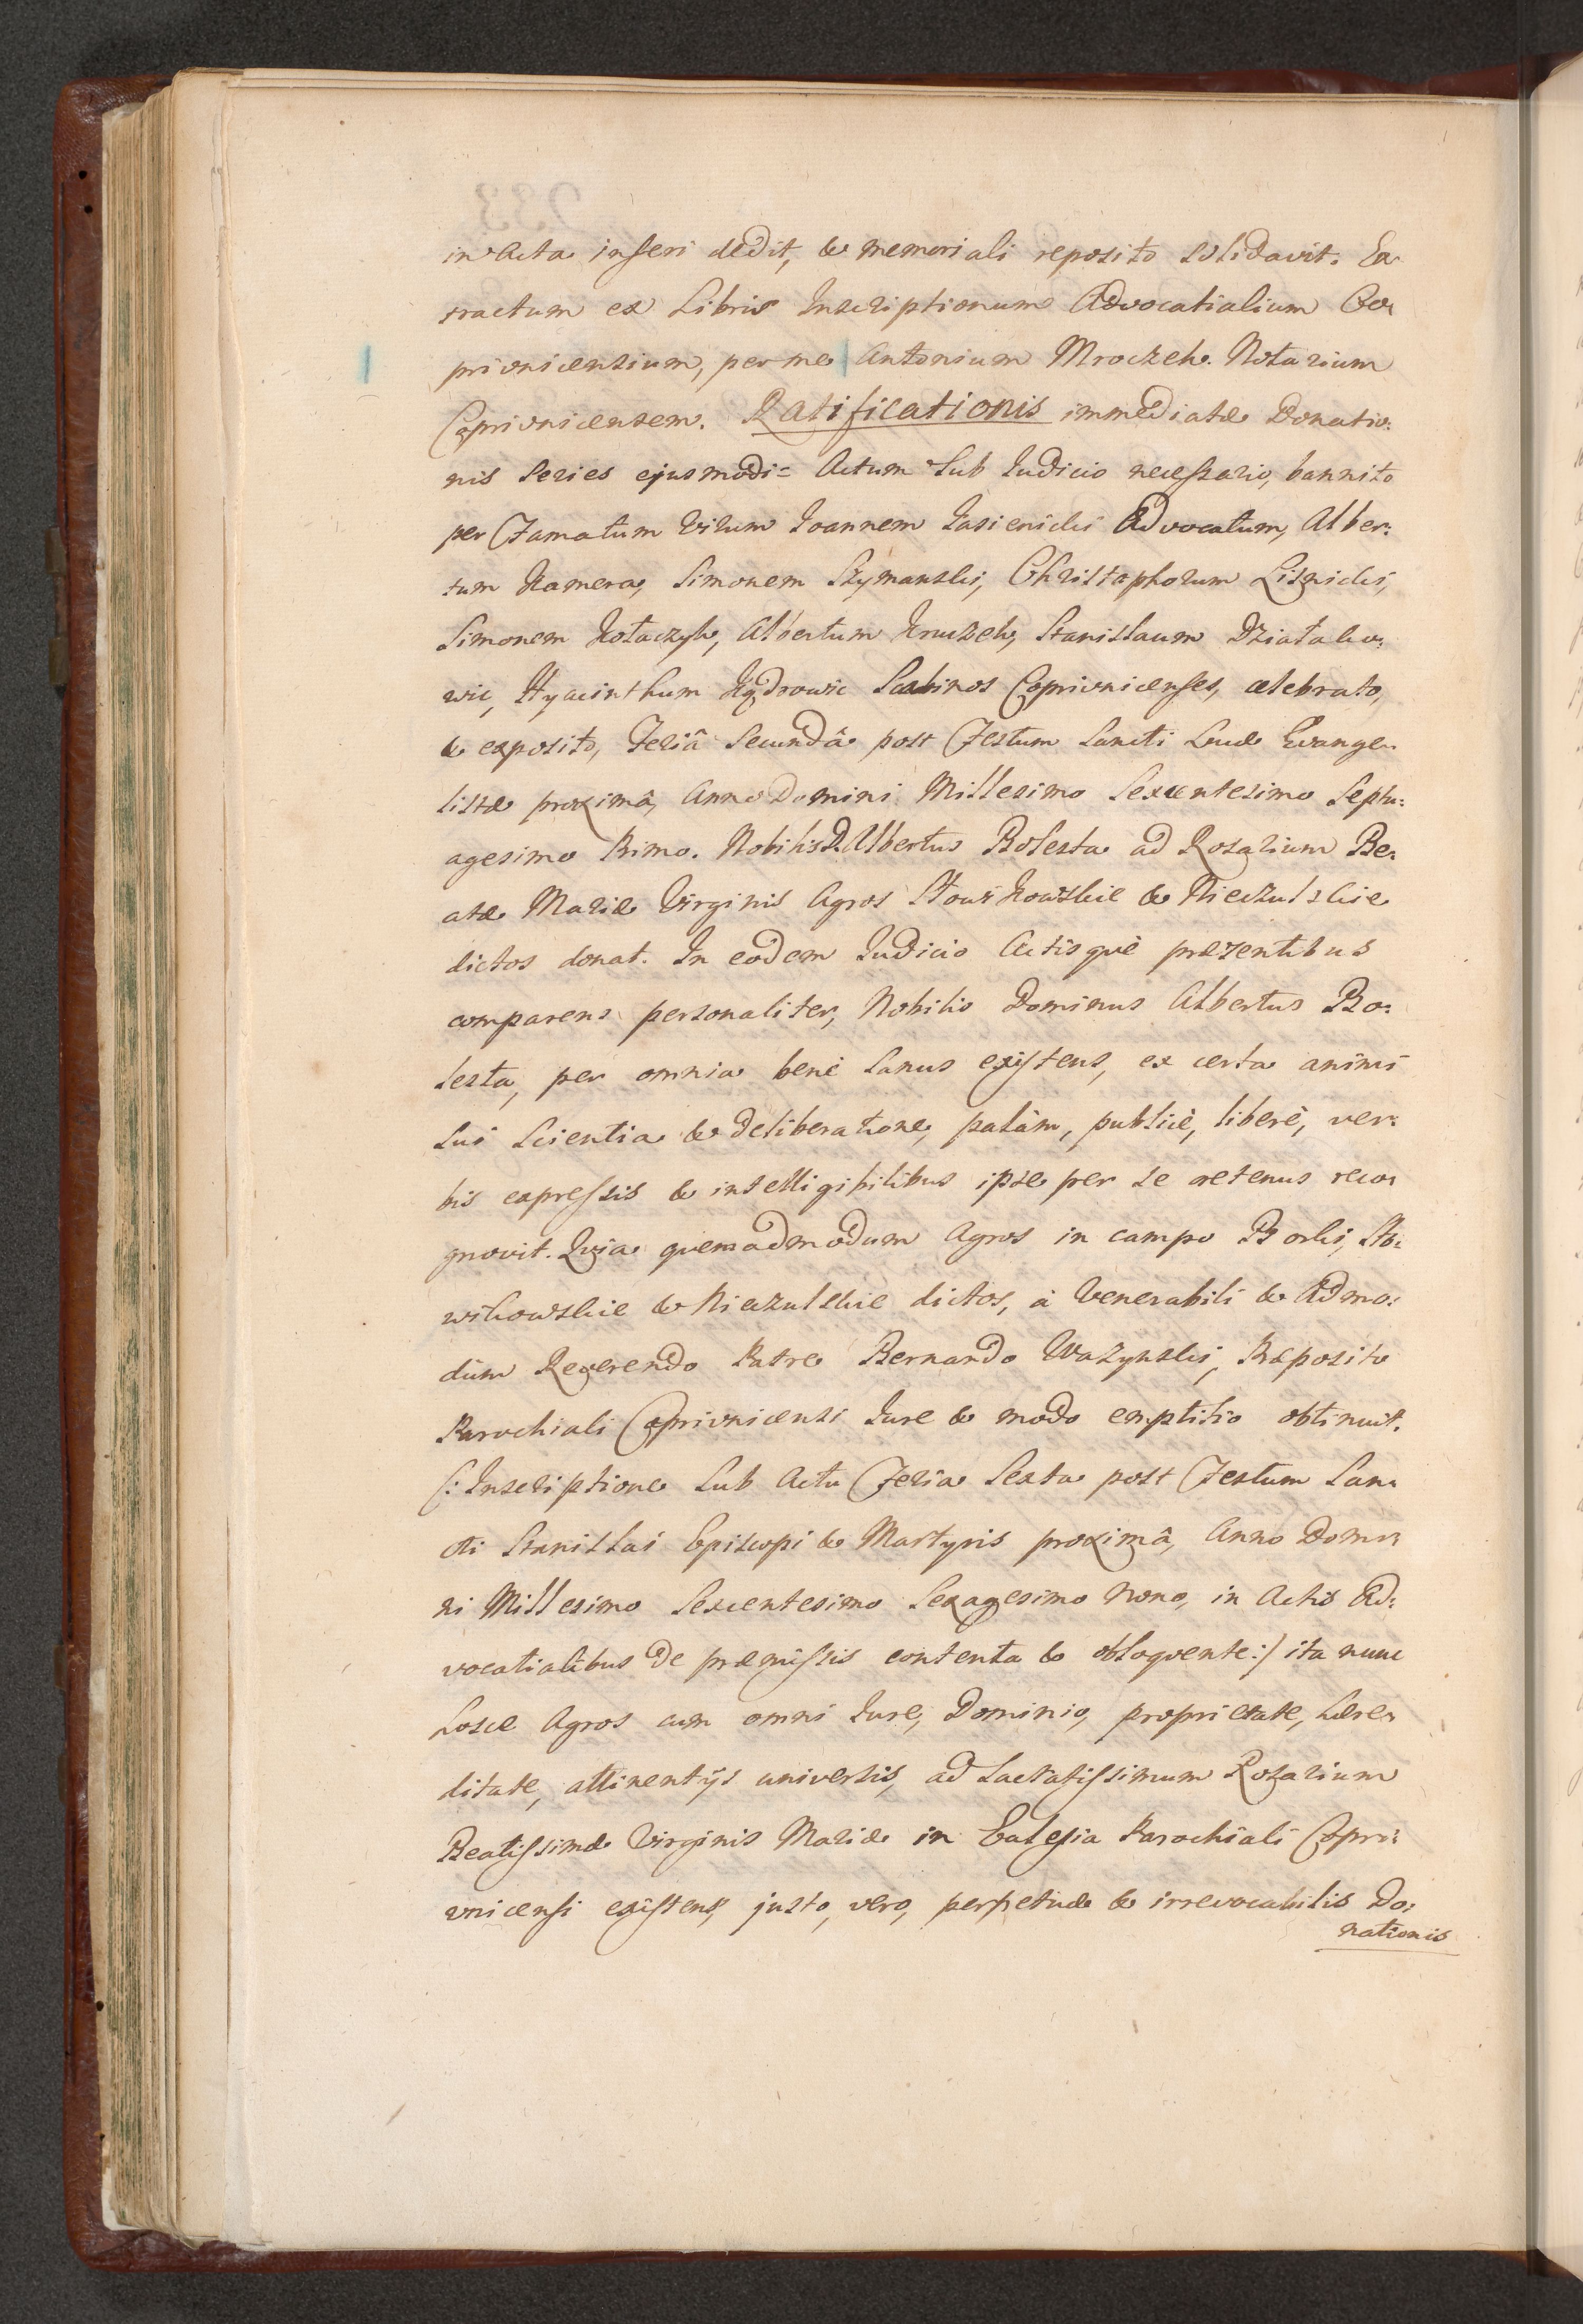 in Acta inseri dedit, & memoriali reposito solidavit. Ex
tractum ex Libris Inscriptionum Advocatialium Co
privnicensium, per me Antonium Mroczek Notarium
Coprivnicensem. Ratificationis immediatæ Donatio:
nis Series ejusmodi = Actum Sub Judicio necessario, bannito
per Famatum Virum Joannem Jasienicki Advocatum, Alber:
tum Kamera, Simonem Szymanski, Christophorum Lisnicki,
Simonem Kołaczyk, Albertum Kruczek, Stanislaum Działako:
wic, Hyacinthum Kędrowic Scabinos Coprivnicenses, celebrato,
& exposito, Feriâ Secundâ post Festum Sancti Lucæ Evange
listæ proximâ, Anno Domini Millesimo Sexcentesimo Septu:
agesimo Primo. Nobilis D. Albertus Bolesta ad Rosarium Be:
atæ Mariæ Virginis Agros Słowikowskie & Nieczulskie
dictos donat. In eodem Judicio Actisquè præsentibus
comparens personaliter, Nobilis Dominus Albertus Bo:
lesta, per omnia benè sanus existens, ex certa animi
sui Scientia & deliberatione, palàm, publicè, liberè, ver:
bis expressis & intelligibilibus ipse per se oretenus reco
gnovit. Quia quemadmodum Agros in campo Borki, Sło:
wikowskie & Nieczulskie dictos, à Venerabili & Admo:
dùm Reverendo Patre Bernardo Wazynski, Præposito
Parochiali Coprivnicensi Jure & modo emptitio obtinuit.
/: Inscriptione Sub Actu Feria Sexta post Festum San
cti Stanislai Episcopi & Martyris proximâ, Anno Domi
ni Millesimo Sexcentesimo Sexagesimo Nono, in Actis Ad:
vocatialibus de præmissis contenta & obloquente :/ ita nunc
hosce Agros cum omni Jure, Dominio, proprietate, hære
ditate, attinentijs universis, ad Sacratissimum Rosarium
Beatissimæ Virginis Mariæ in Eclesia Parochiali Copri:
vnicensi existens, justo, vero, perpetuæ & irrevocabilis Do:
nationis